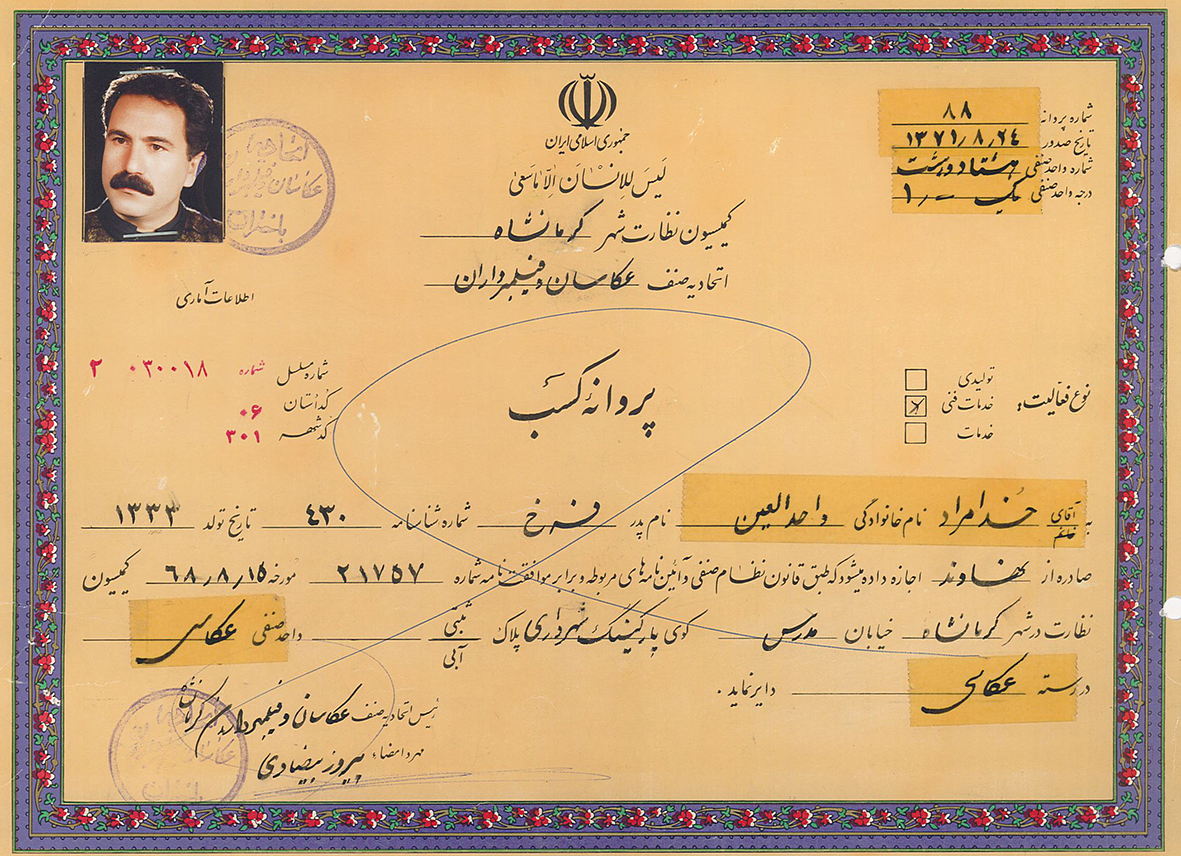 جمهوری اسلامی ایران
لَیسَ لِلاِنسَانَ اِلّا مَاسَعیٰ
کمیسیون نظارت شهر کرمانشاه
اتحادیه صنف عکاسان و فیلمبرداران
شماره پروانه ۸۸
تاریخ صدور ۱۳۷۱٫۸٫۲۴
شماره واحد صنفی هشتاد و هشت
درجه واحد صنفی یک ۱٫
اطلاعات آماری
شماره مسلسل شماره ۰۳۰۰۱۸ ۲
کد استان ۰۶
کد شهر ۳۰۱
پروانهٔ کسب
نوع فعالیت:
تولیدی
خدمات فنی
خدمات
به آقای خانم خدامراد نام خانوادگی واحدالعین نام پدر فرخ شماره شناسنامه ۴۳۰ تاریخ تولد ۱۳۳۳
صادره از نهاوند اجازه داده میشود که طبق قانون نظام صنفی و آئین نامه های مربوطه و برابر موافقت نامه شماره ۲۱۷۵۷ مورخه ۶۸٫۸٫۱۵ کمیسیون
نظارت در شهر کرمانشاه خیابان مدرس کوی پارکینگ شهرداری پلاک ثبتی آبی واحد صنفی عکاسی
در رسته عکاسی دایر نماید.
رئیس اتحادیه صنف عکاسان و فیلمبرداران کرمانشاه
مهر و امضاء